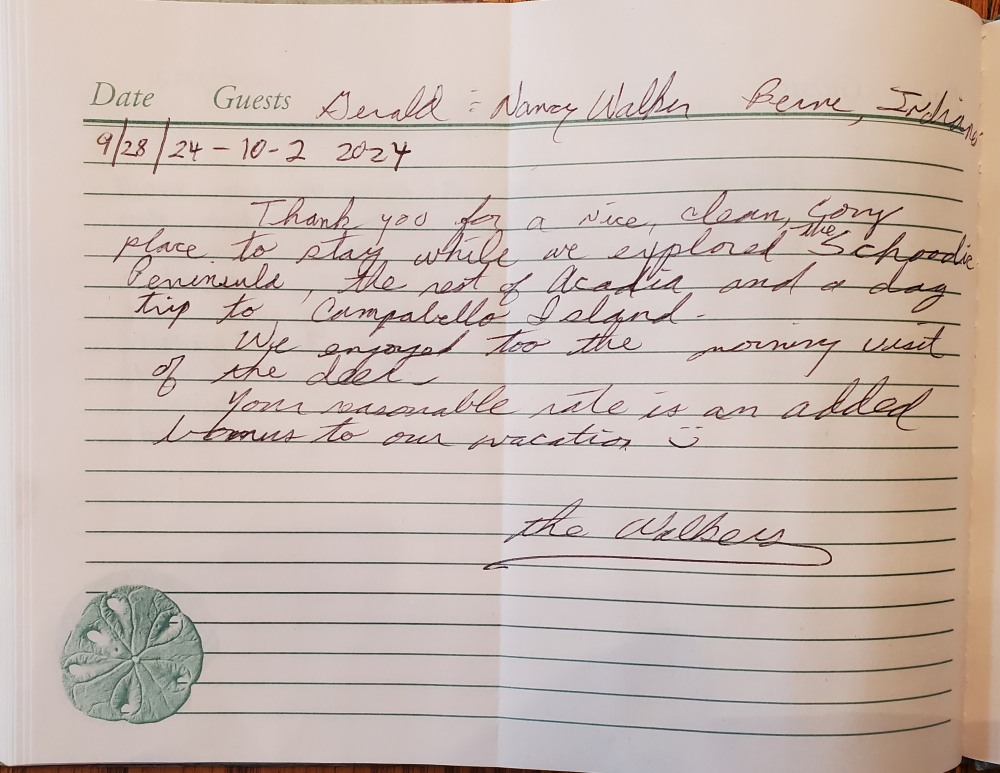 Date Guests Gerald & Nancy Walker Berne, Indiana
9/28/24 - 10-2 2024
Thank you for a nice, clean, cozy
place to stay while we explored the Schoodic
Peninsula, the rest of Acadia and a day
trip to Campabello Island.
We enjoyed too the morning visit
of the deer
Your reasonable rate is an added
bonus to our vacation ☺
The Walkers